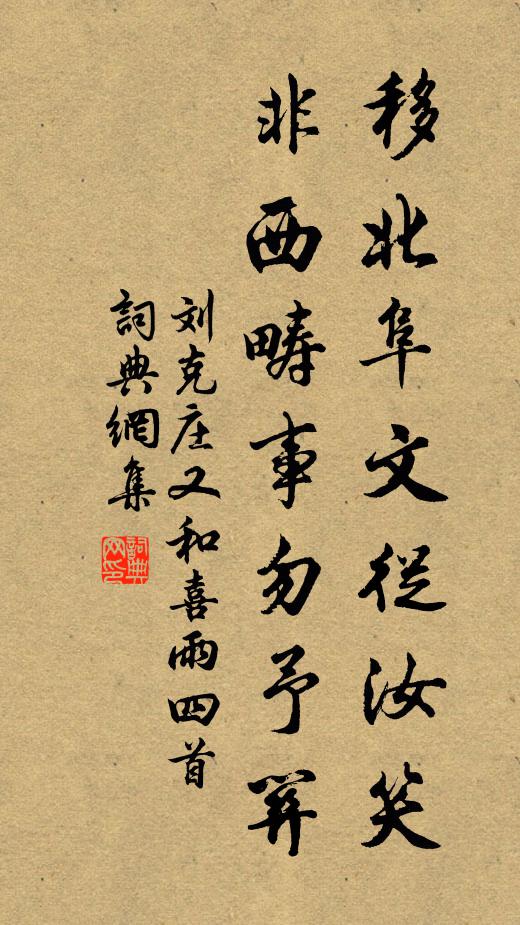 移北阜文從汝笑
非西疇事勿予關
刘克庄又和喜雨四首
詞典網集
詞典网印